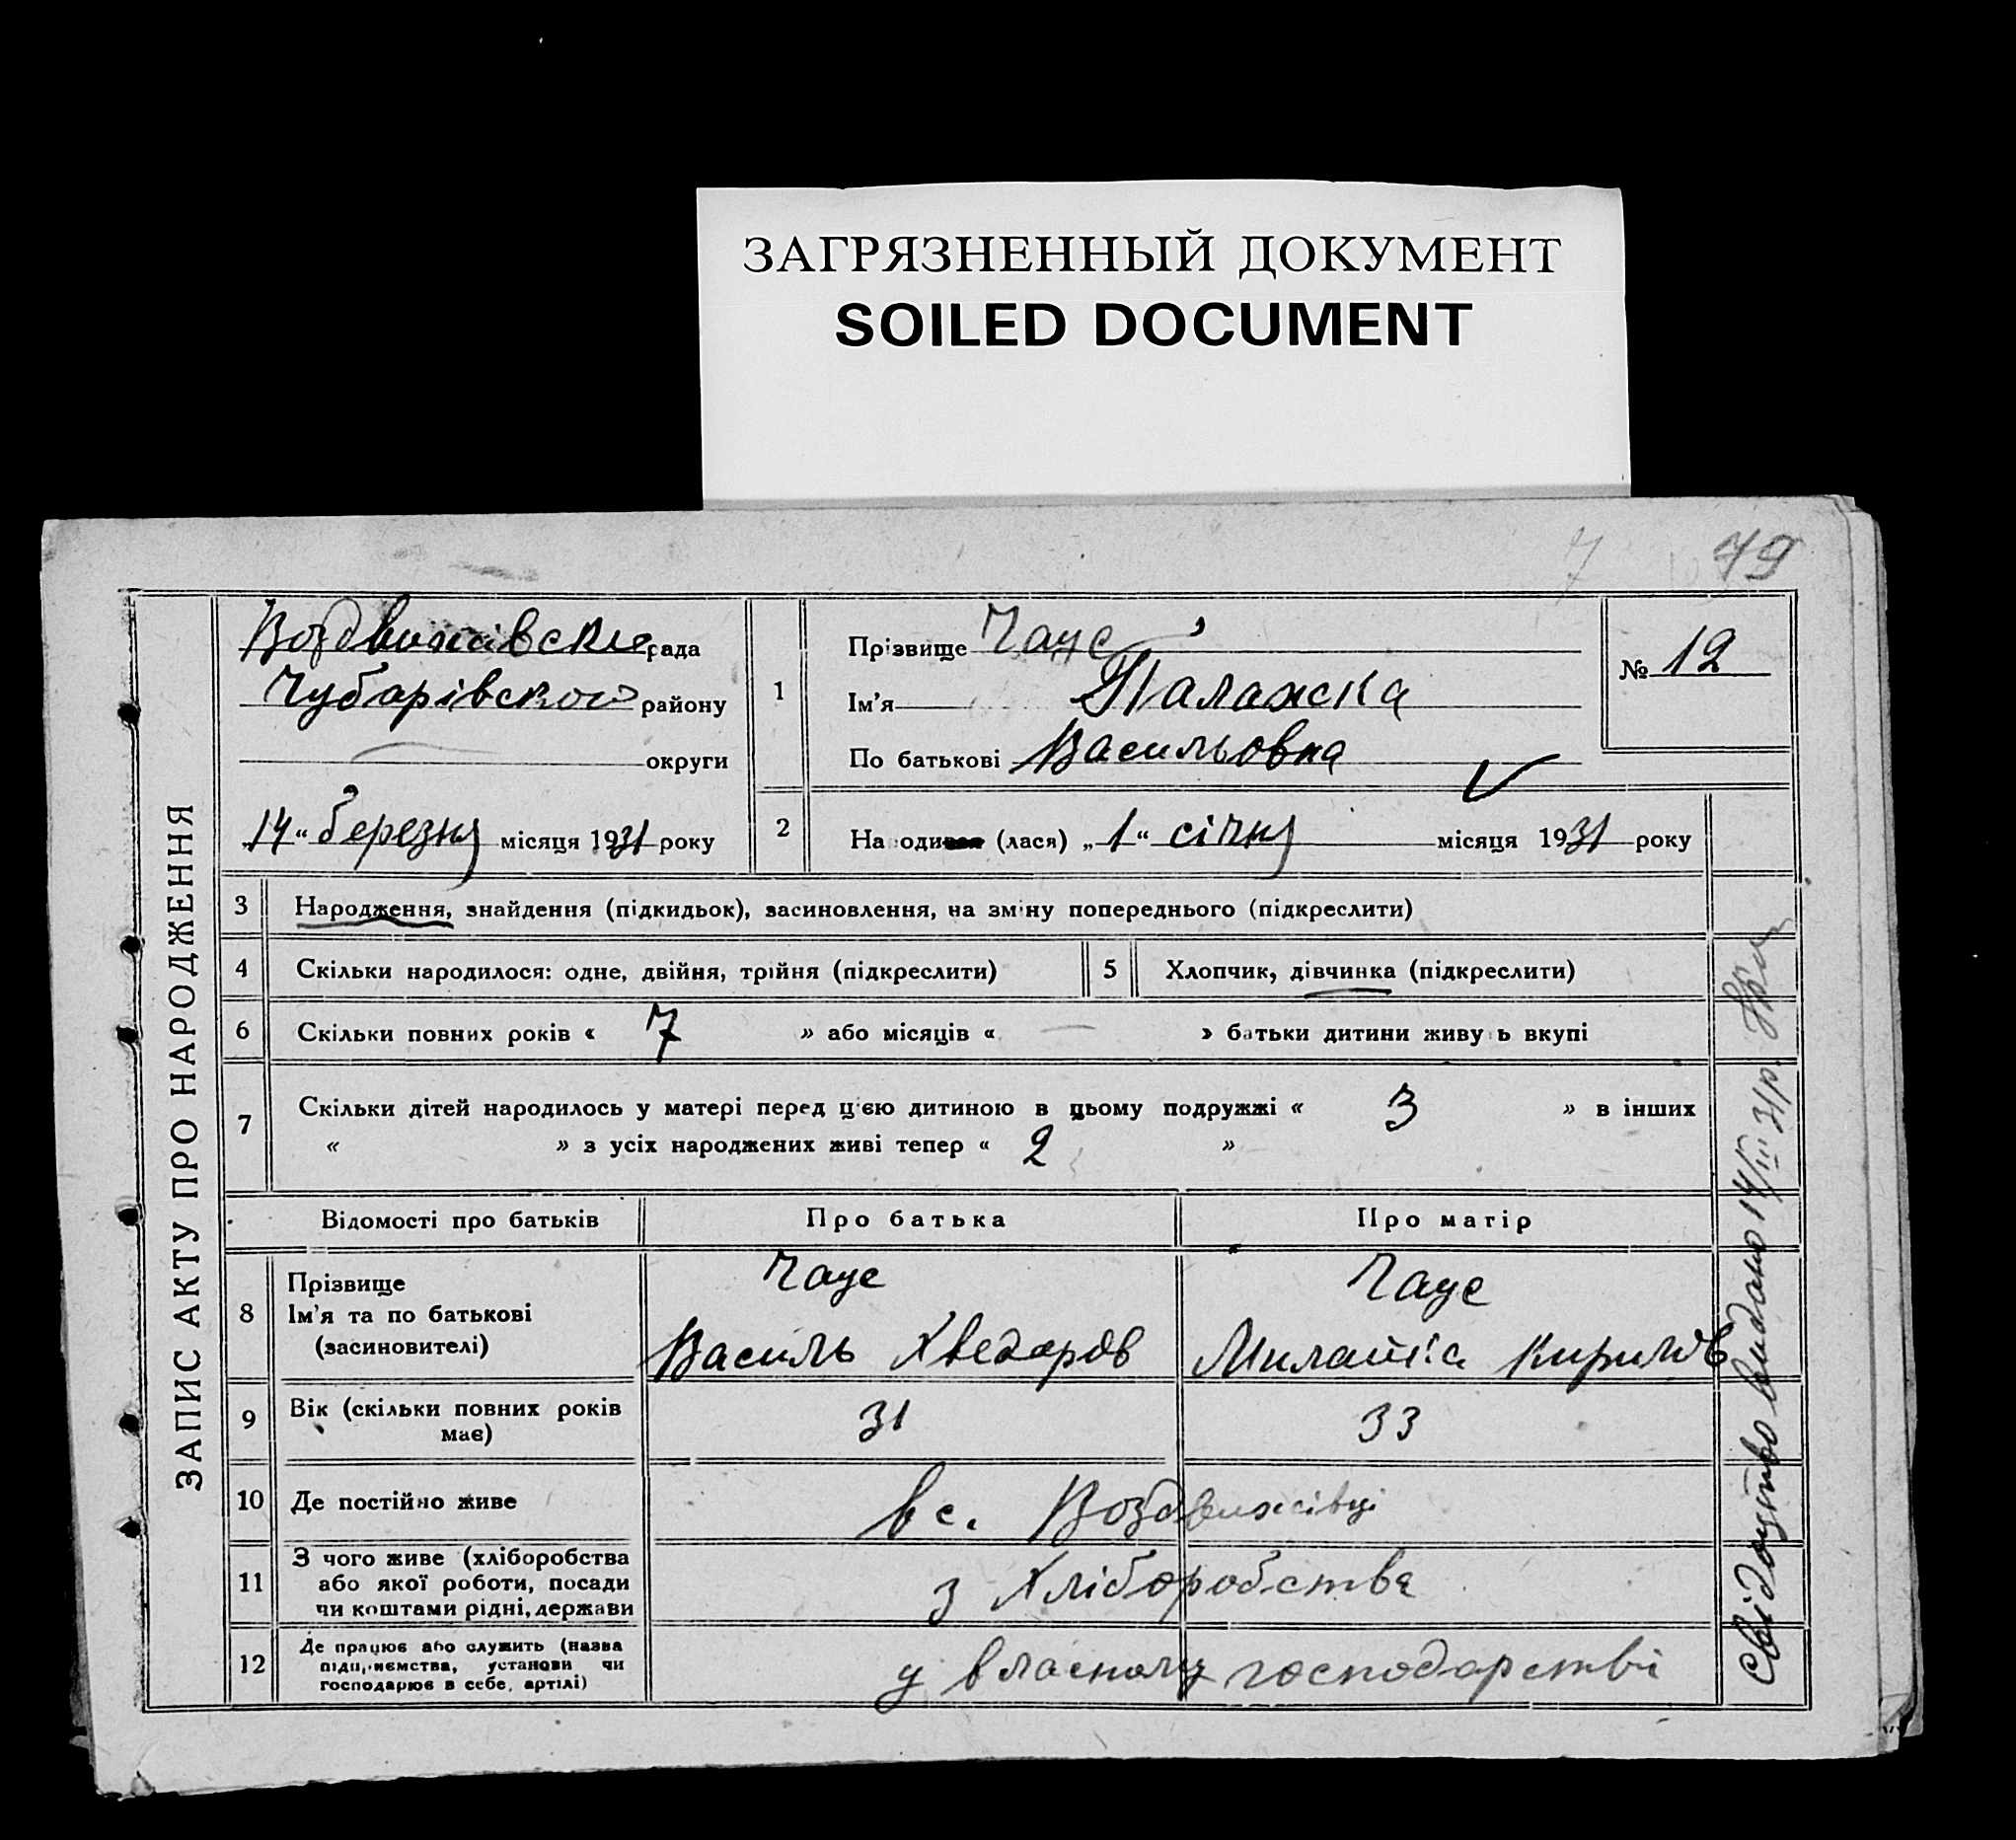 ЗАГРЯЗНЕННЫЙ ДОКУМЕНТ
SOILED DOCUMENT
7 79
ЗАПИС АКТУ ПРО НАРОДЖЕННЯ
Воздвижівська рада
Чубарівсково району
округи
„14“ березня місяця 1931 року
1
Прізвище Чаус
Ім'я Палажка
По батькові Васильовна
№ 12
2
Народився (лася) „1“ січня місяця 1931 року
3 Народження, знайдення (підкидьок), засиновлення, на зміну попереднього (підкреслити)
4 Скільки народилося: одне, двійня, трійня (підкреслити)
5 Хлопчик, дівчинка (підкреслити)
6 Скільки повних років « 7 » або місяців « — » батьки дитини живуть вкупі
7 Скільки дітей народилось у матері перед цією дитиною в цьому подружжі « 3 » в інших
« » з усіх народжених живі тепер « 2 »
Відомості про батьків Про батька Про матір
8 Прізвище Чаус Чаус
Ім'я та по батькові
(засиновителі) Василь Хведоров Милашка Кирилов
9 Вік (скільки повних років має) 31 33
10 Де постійно живе в с. Воздвижівці
11 З чого живе (хліборобства
або якої роботи, посади
чи коштами рідні, держави з хліборобства
12 Де працює або служить (назва
підприємства, установи чи
господарює в себе, артілі) у власному господарстві
Свідоцтво видано 14/III 31 р.